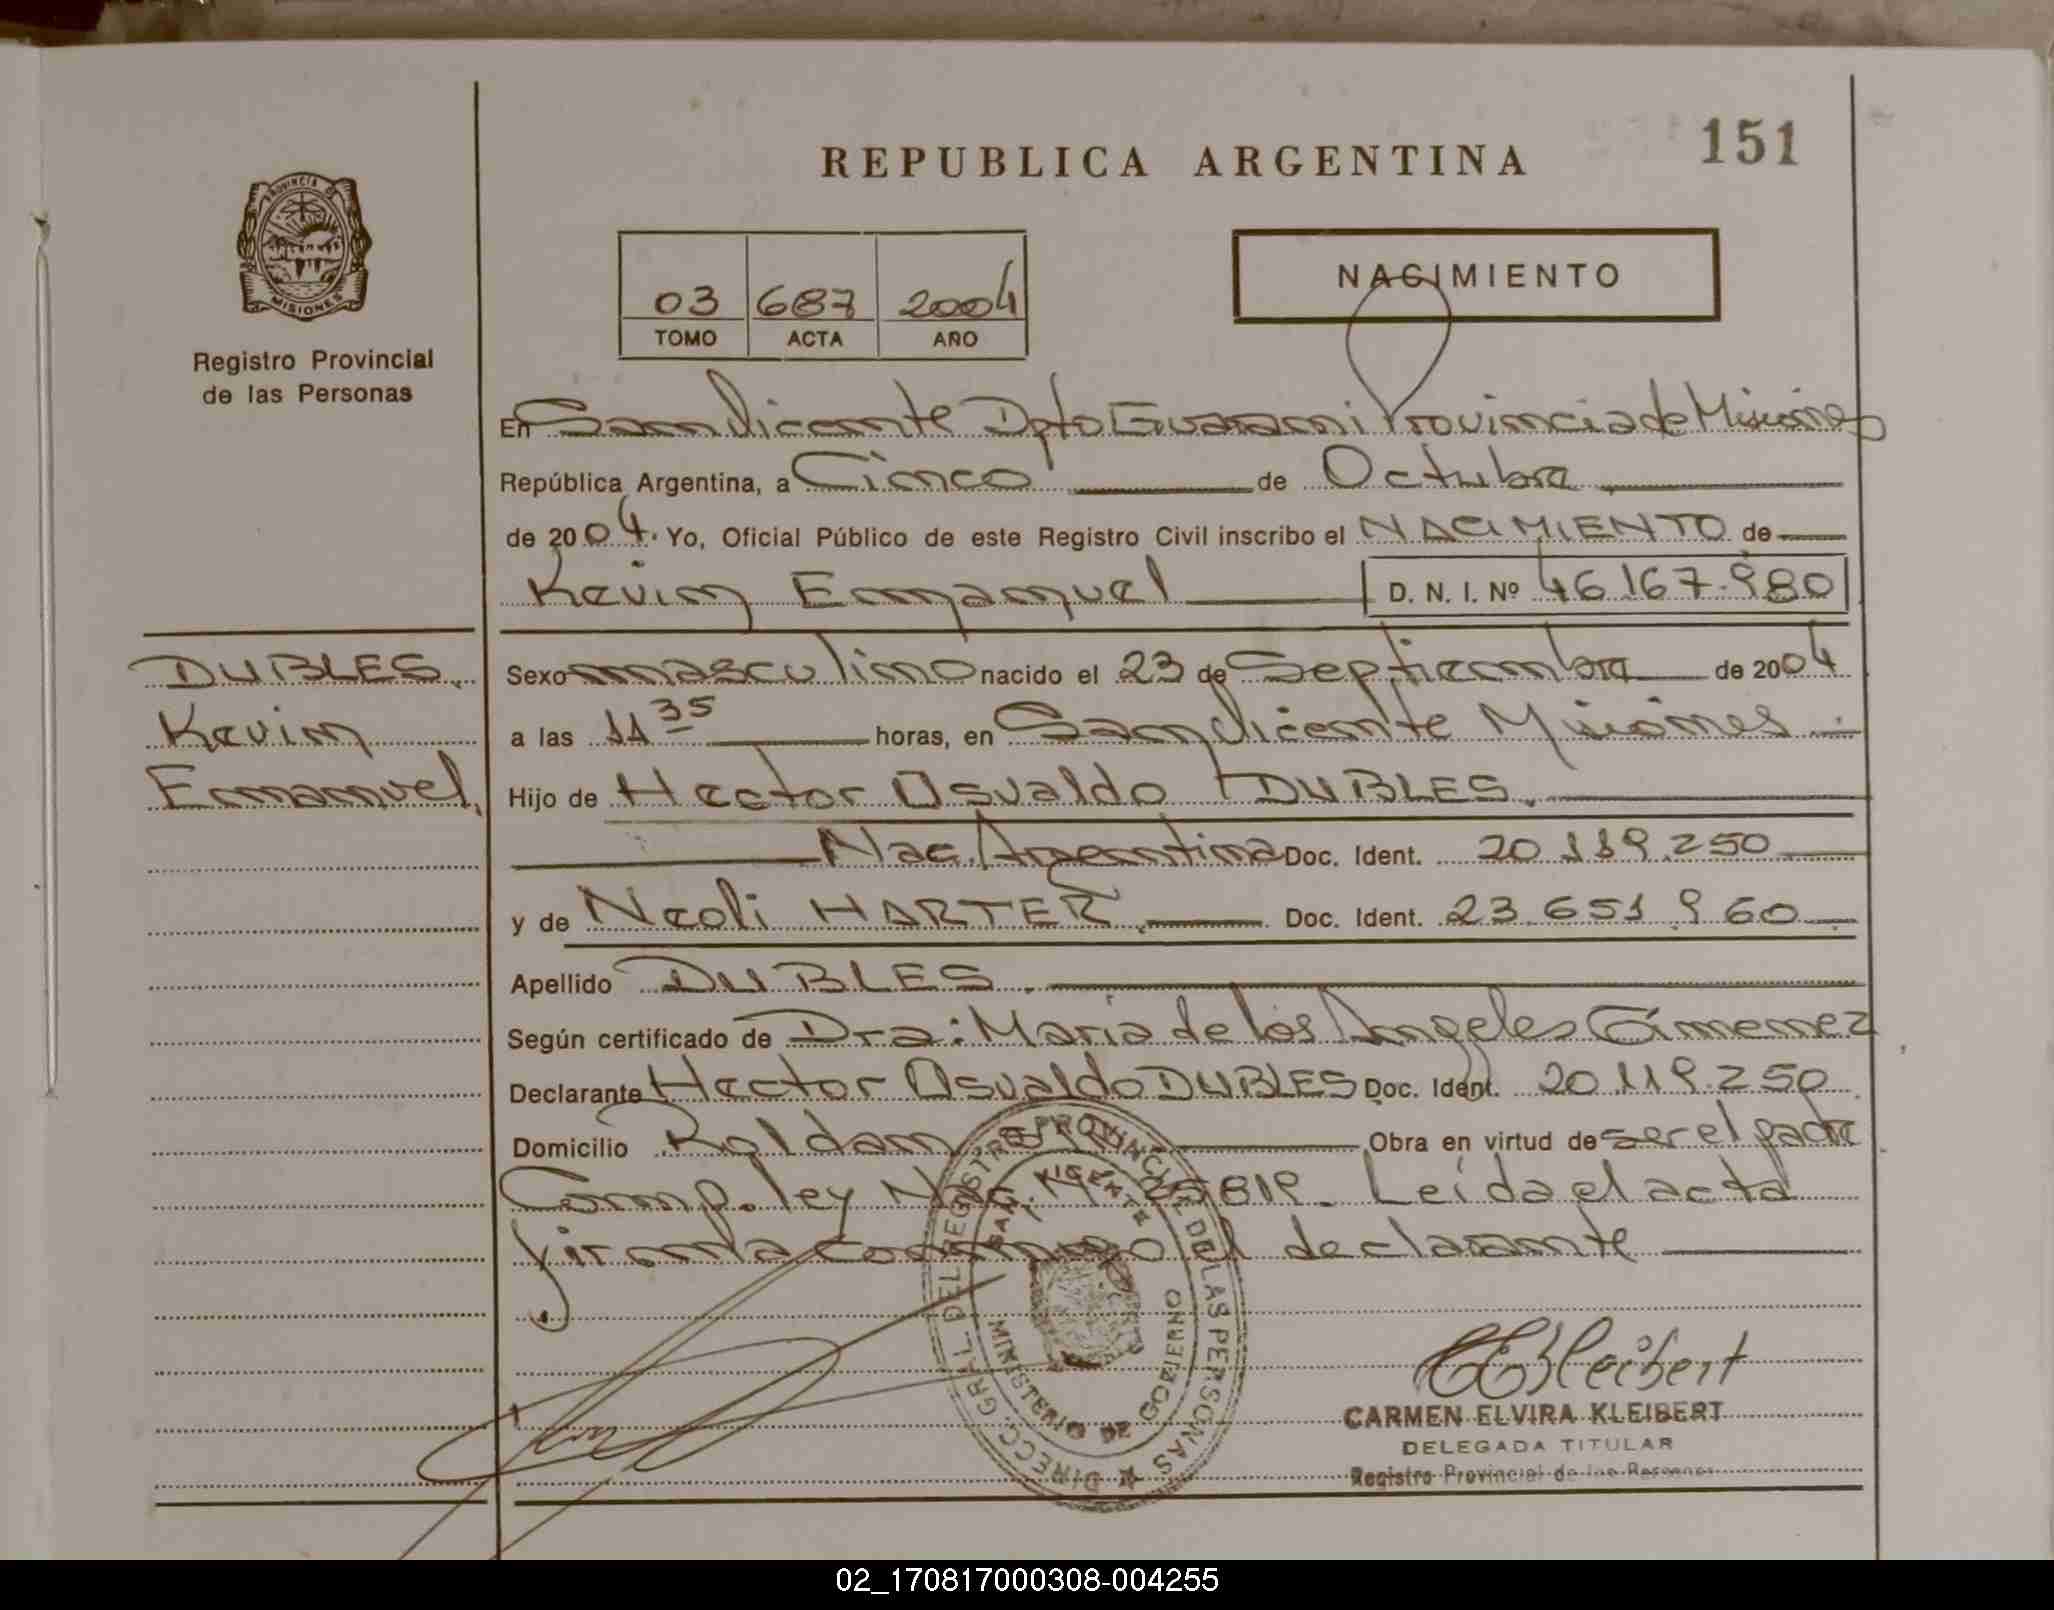 REPUBLICA ARGENTINA
151
PROVINCIA DE
MISIONES
Registro Provincial
de las Personas
03 687 2004
TOMO ACTA AÑO
NACIMIENTO
En San Vicente Dpto Guarani Provincia de Misiones
República Argentina, a Cinco de Octubre
de 2004. Yo, Oficial Público de este Registro Civil inscribo el NACIMIENTO de
Kevin Emmanuel D. N. I. Nº 46.167.980
DUBLES.
Kevin
Emmanuel.
Sexo masculino nacido el 23 de Septiembre de 2004
a las 11 35 horas, en San Vicente Misiones
Hijo de Hector Osvaldo DUBLES.
Nac. Argentina Doc. Ident. 20.119.250
y de Neoli HARTER. Doc. Ident. 23.651.960
Apellido DUBLES.
Según certificado de Dra: Maria de los Angeles Gimenez
Declarante Hector Osvaldo DUBLES Doc. Ident. 20.119.250
Domicilio Roldan Obra en virtud de ser el padre
Comp. ley Nac. Nº 25819. Leída el acta
firma conmigo el declarante
DIRECC. GRAL. DEL REGISTRO PROVINCIAL DE LAS PERSONAS
SAN VICENTE
MINISTERIO DE GOBIERNO
CEKleibert
CARMEN ELVIRA KLEIBERT
DELEGADA TITULAR
Registro Provincial de las Personas
02_170817000308-004255